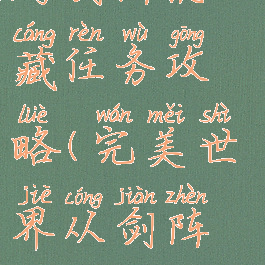 cáng rèn wù gōng
藏任务攻
lüè wán měi shì
略(完美世
jiè cóng jiàn zhèn
界从剑阵